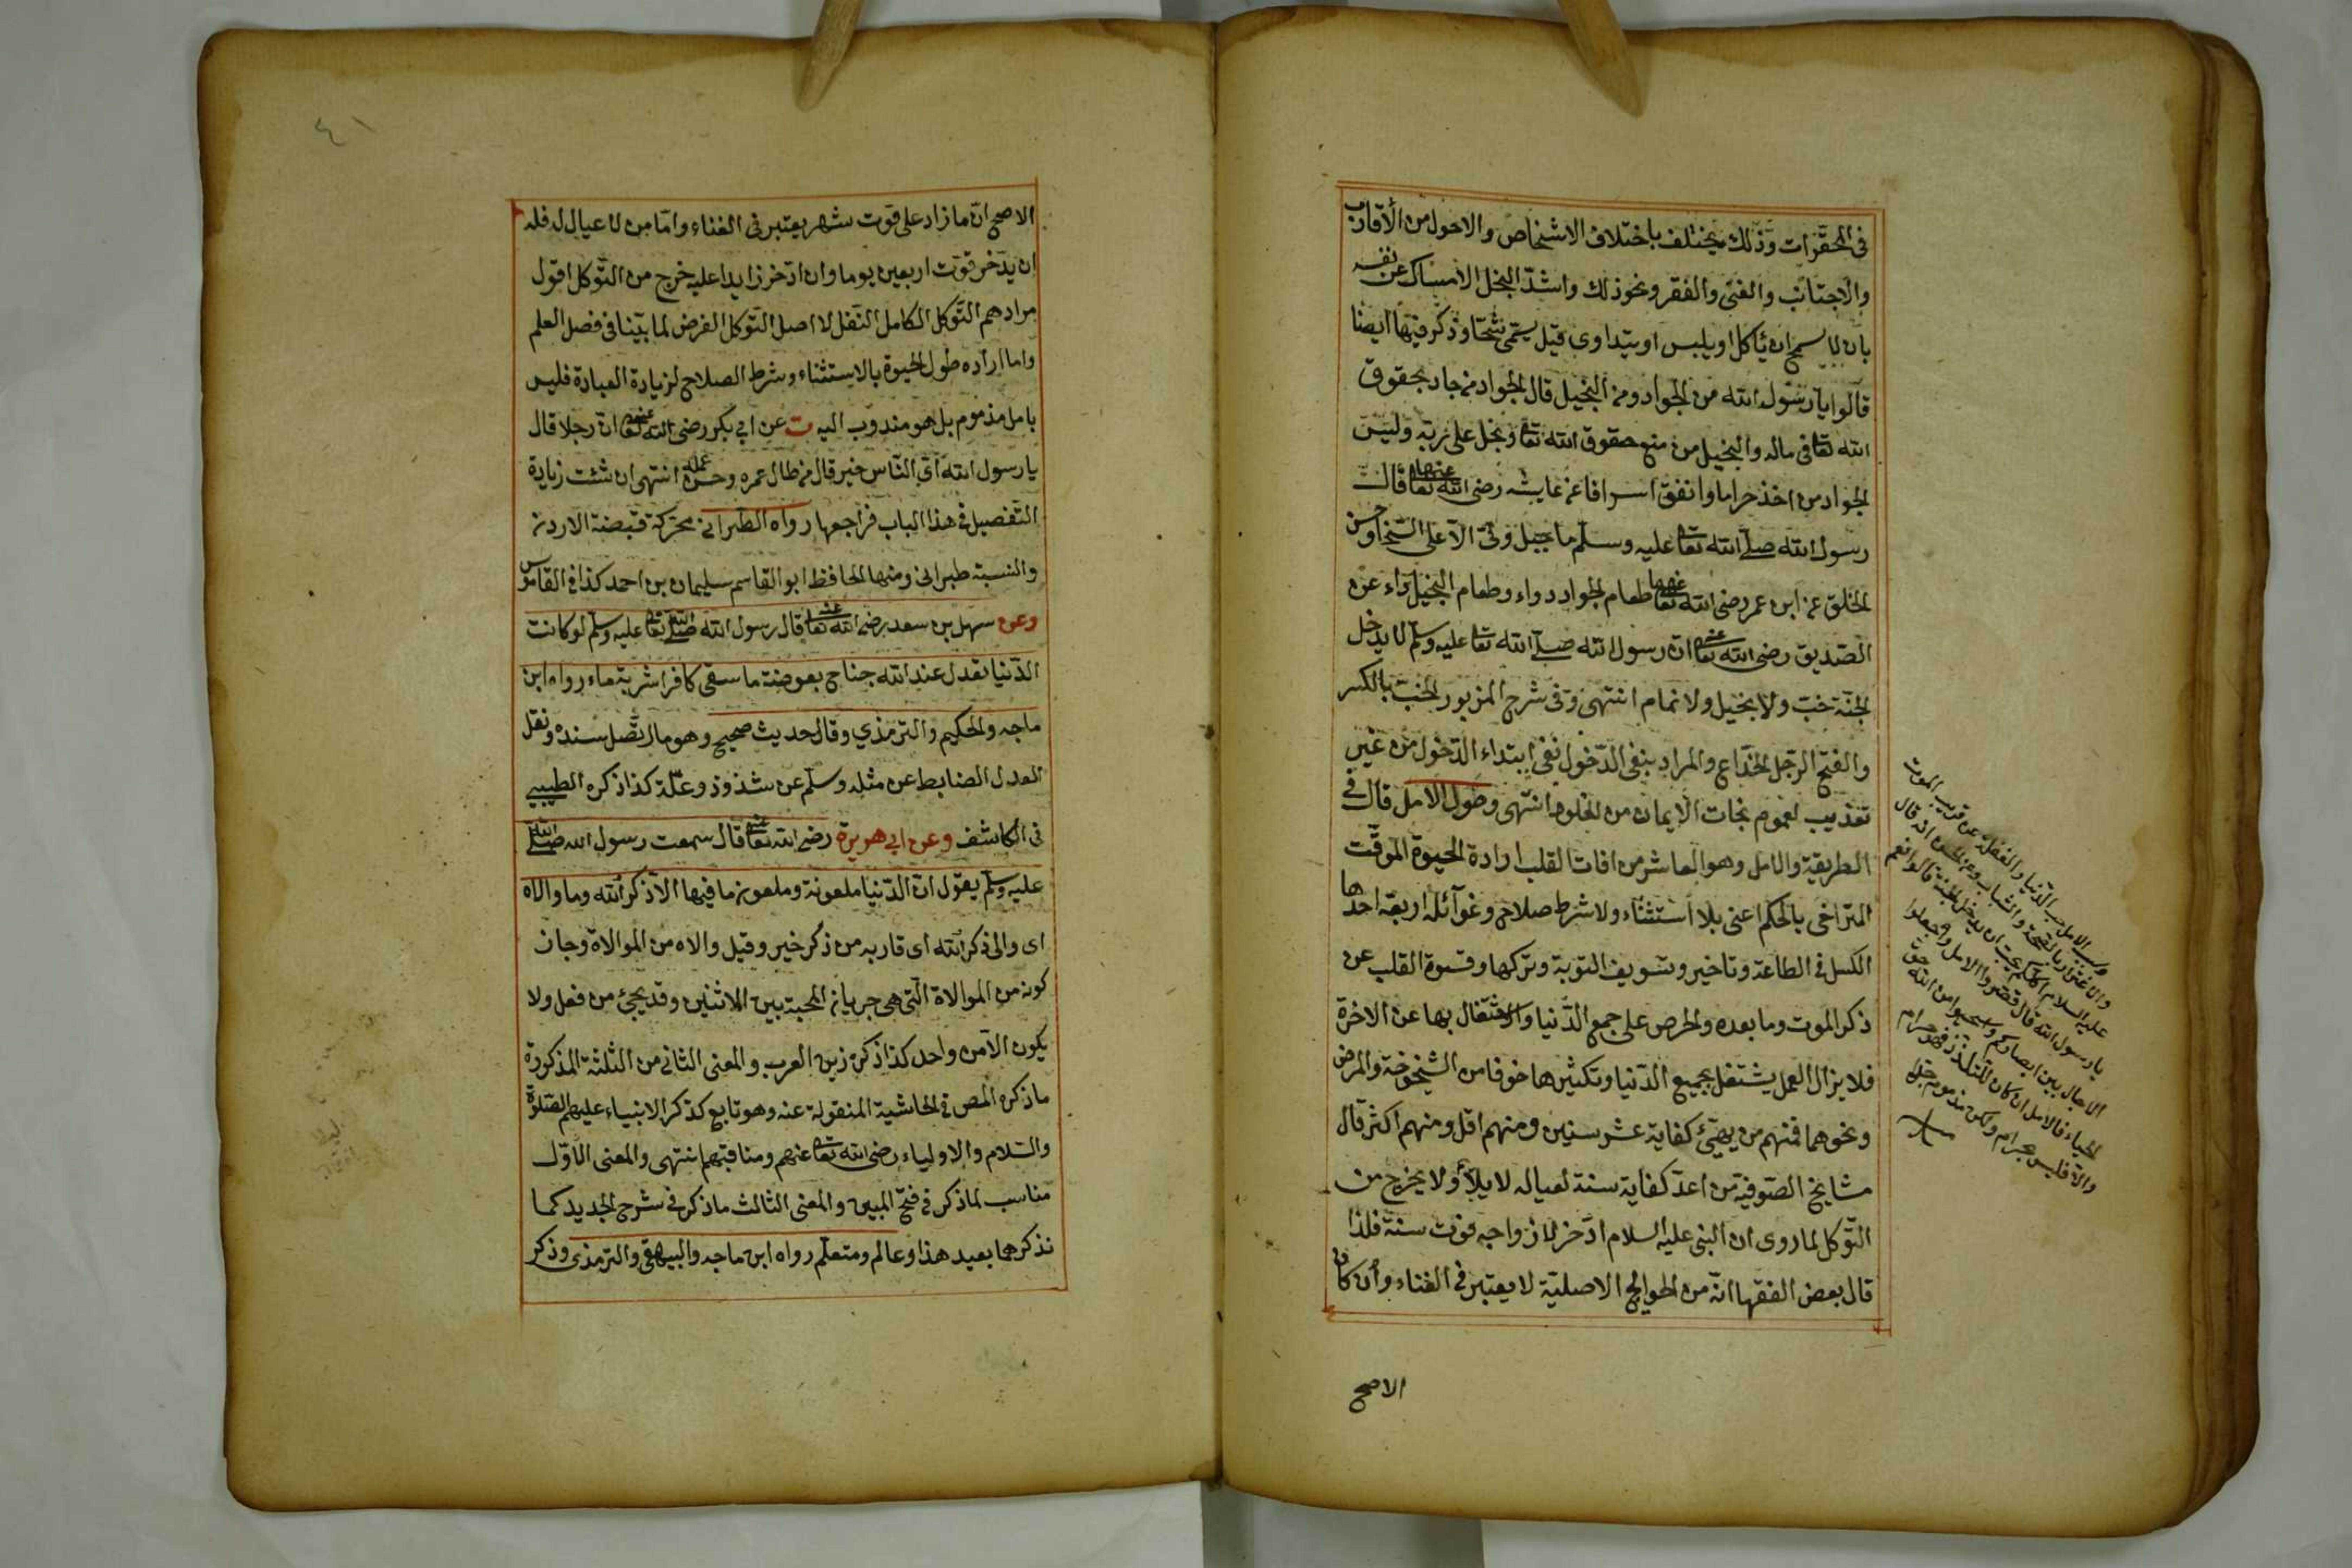 في المحقرات وذلك يختلف باختلاف الاشخاص والاحوال من الأقارب
والاجتناب والغنى والفقر ونحو ذلك واشدّ البخل الامساك عن نفسه
بان لا يسمح ان يأكل او يلبس او يتداوى قيل يسمّى شحّا وذكر فيها ايضا
قالوا يا رسول الله من الجواد ومن البخيل قال الجواد من جاد بحقوق
الله تعا في ماله والبخيل من منع حقوق الله تعا وبخل على ربّه وليس
الجواد من اخذ حراما وانفق اسرافا عن عايشه رضى الله تعا عنها قالت
رسول الله صلى الله تعا عليه وسلم ما جبل وليّ الا على السّخا وحسن
الخلق عن ابن عمر رضى الله تعا عنهما طعام الجواد دواء وطعام البخيل داء عن
الصّديق رضى الله تعا عنه ان رسول الله صلى الله تعا عليه وسلم لا يدخل
الجنة خبّ ولا بخيل ولا نمام انتهى وفى شرح المزبور الخبّ بالكسر
والفتح الرّجل الخدّاع والمراد بنفى الدّخول نفى ابتداء الدّخول من غير
تعذيب لعموم نجات الايمان من الخلود انتهى وطول الامل قال في
الطريقة والامل وهو العاشر من افات القلب ارادة الحيوة الموقّت
المتراخى بالحكم اعنى بلا استثناء ولا شرط صلاح وغوآئله اربعة احدها
الكسل في الطاعة وتاخير وتسويف التوبة وتركها وقسوة القلب عن
ذكر الموت وما بعده والحرص على جمع الدّنيا والاشتغال بها عن الاخرة
فلا يزال العمل يشتغل بجميع الدّنيا وتكثيرها خوفا من الشّيخوخة والمرض
ونحوهما فمنهم من يهيّئ كفاية عشر سنين ومنهم اقل ومنهم اكثر قال
مشايخ الصّوفية من اعدّ كفاية سنة لعياله لا يلأ ولا يخرج من
التّوكل لما روى ان النبى عليه السلام ادّخر لازواجه قوت سنة فلذا
قال بعض الفقها انّه من الحوايج الاصليّة لا يعتبر في الغناء وان كان
الاصح
وسبب الامل حب الدّنيا والغفلة عن قرب الموت
والاغترار بالصّحة والشباب وعن الحسن انه قال
عليه السلام اكلكم يحبّ ان يدخل الجنة قالوا نعم
يا رسول الله قال قصّروا الامل واجعلوا
الاجال بين ابصاركم واستحيوا من الله حقّ
الحياء فالامل ان كان للتلذذ فهو حرام
والا فليس بحرام ولكن مذموم جدا
٤١
الاصح انّ ما زاد على قوت شهر يعتبر في الغناء وامّا من لا عيال له فله
ان يدّخر قوت اربعين يوما وان ادّخر زايدا عليه خرج من التّوكل اقول
مرادهم التّوكل الكامل النّفل لا اصل التّوكل الفرض لما بيّنا في فصل العلم
واما ارآده طول الحيوة بالاستثناء وشرط الصلاح لزيادة العبادة فليس
بامل مذموم بل هو مندوب اليه ت عن ابى بكر رضى الله تعا عنه انّ رجلا قال
يا رسول الله اىّ النّاس خير قال من طال عمره وحسن عمله انتهى ان شئت زيادة
التّفصيل في هذا الباب فراجعها رواه الطّبرانى محرّكة قصبة الاردن
والنسبة طبرانى ومنها الحافظ ابو القاسم سليمان بن احمد كذا في القاموس
وعن سهل بن سعد رضى الله تعا عنه قال رسول الله صلى الله تعا عليه وسلم لو كانت
الدّنيا تعدل عند الله جناح بعوضة ما سقى كافرا شربة ماء رواه ابن
ماجه والحكيم والترمذي وقال حديث صحيح وهو ما اتّصل سنده ونقل
العدل الضابط عن مثله وسلّم عن شذوذ وعلّة كذا ذكره الطيبى
في الكاشف وعن ابى هريرة رضى الله تعا عنه قال سمعت رسول الله صلى الله
عليه وسلم يقول انّ الدّنيا ملعونة وملعون ما فيها الّا ذكر الله وما والاه
اى والى ذكر الله اى قاربه من ذكر خير وقيل والاه من الموالاة وجاز
كونه من الموالاة الّتى هى جريان المحبة بين الاثنين وقد يجئ من فعل ولا
يكون الّا من واحد كذا ذكره زين العرب والمعنى الثانى من الثلثة المذكورة
ما ذكره المص في الحاشية المنقولة عنه وهو تابع كذكر الانبياء عليهم الصّلوة
والسّلام والاولياء رضى الله تعا عنهم ومناقبهم انتهى والمعنى الاوّل
مناسب لما ذكر في فتح المبين والمعنى الثالث ما ذكر في شرح الجديد كما
نذكرهما بعيد هذا وعالم ومتعلم رواه ابن ماجه والبيهقى والترمذى وذكر